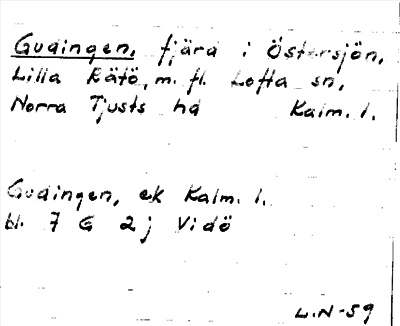 Gudingen, fjärd i Östersjön,
Lilla Rätö, m. fl. Lofta sn,
Norra Tjusts hd Kalm. l.
Gudingen, ek Kalm. l.
bl. 7 G 2 j Vidö
L.N-59